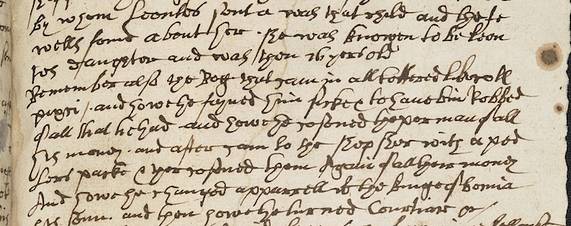 by whom Leontes sent a was that child and the Je
wells found about her. she was knowen to be leon
tes daughter and was then 16 yers old
Remember also the Rog that cam in all tottered like coll
pixci /. and howe he feyned him sicke & to haue bin Robbed
of all that he had and howe he cosened the por man of all
his money. and after cam to the shep sher with a ped
lers packe & ther cosened them Again of all their money
And howe he changed apparrell with the kinge of bomia
his sonn. and then howe he turned Courtiar &c /